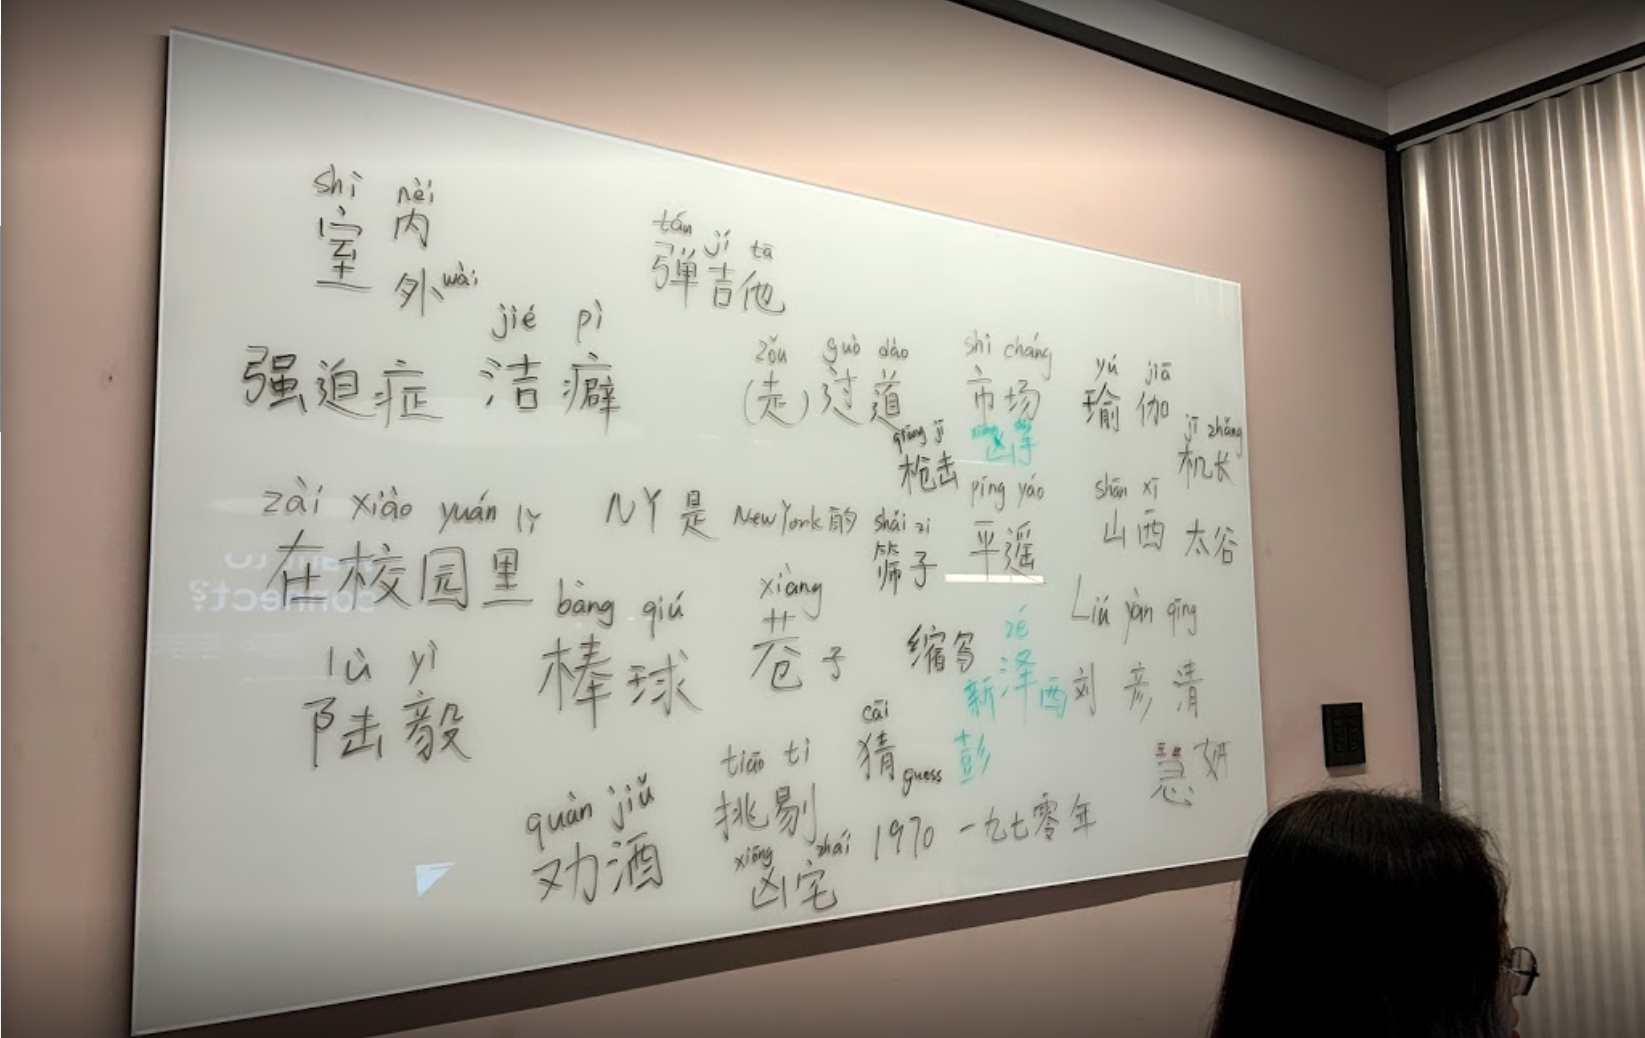 shì nèi
室 内
外 wài
tán jí tā
弹吉他
jié pì
强迫症 洁癖
zǒu guò dào
(走)过道
shì chǎng
市场
yú jiā
瑜伽
qiāng jī
枪击
jī zhǎng
机长
zài xiào yuán lǐ
在校园里
NY是 New York的
shāi zi
筛子
píng yáo
平遥
shān xī
山西 太谷
bàng qiú
棒球
xiàng
巷子
缩写
zé
新泽西
Liú yàn qīng
刘彦清
lù yì
陆毅
cāi
猜 guess
彭
慧妍
quàn jiǔ
劝酒
tiāo ti
挑剔
xiōng zhái
凶宅
1970 一九七零年
connect?